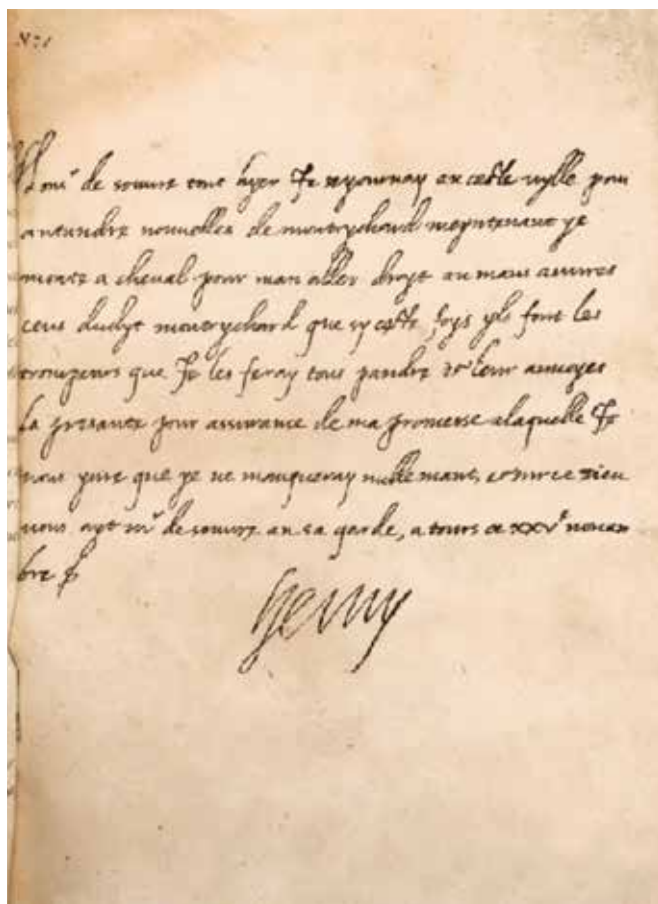 N° 1
Monsr de souvre tout hyer Je seyournay an ceste vylle pour
antandre nouvelles de montrychard meyntenant ye
monte a cheval pour man aller droyt au mans assures
ceus dudyt montrychard que sy ceste foys yls font les
trompeurs que Je les feray tous pandre & leur anvoyes
la presante pour assurance de ma promesse a laquelle Je
vous yure que ye ne manqueray nullemant, & sur ce dieu
vous ayt mr de souvre an sa garde, a tours ce xxve novam
bre
Henry